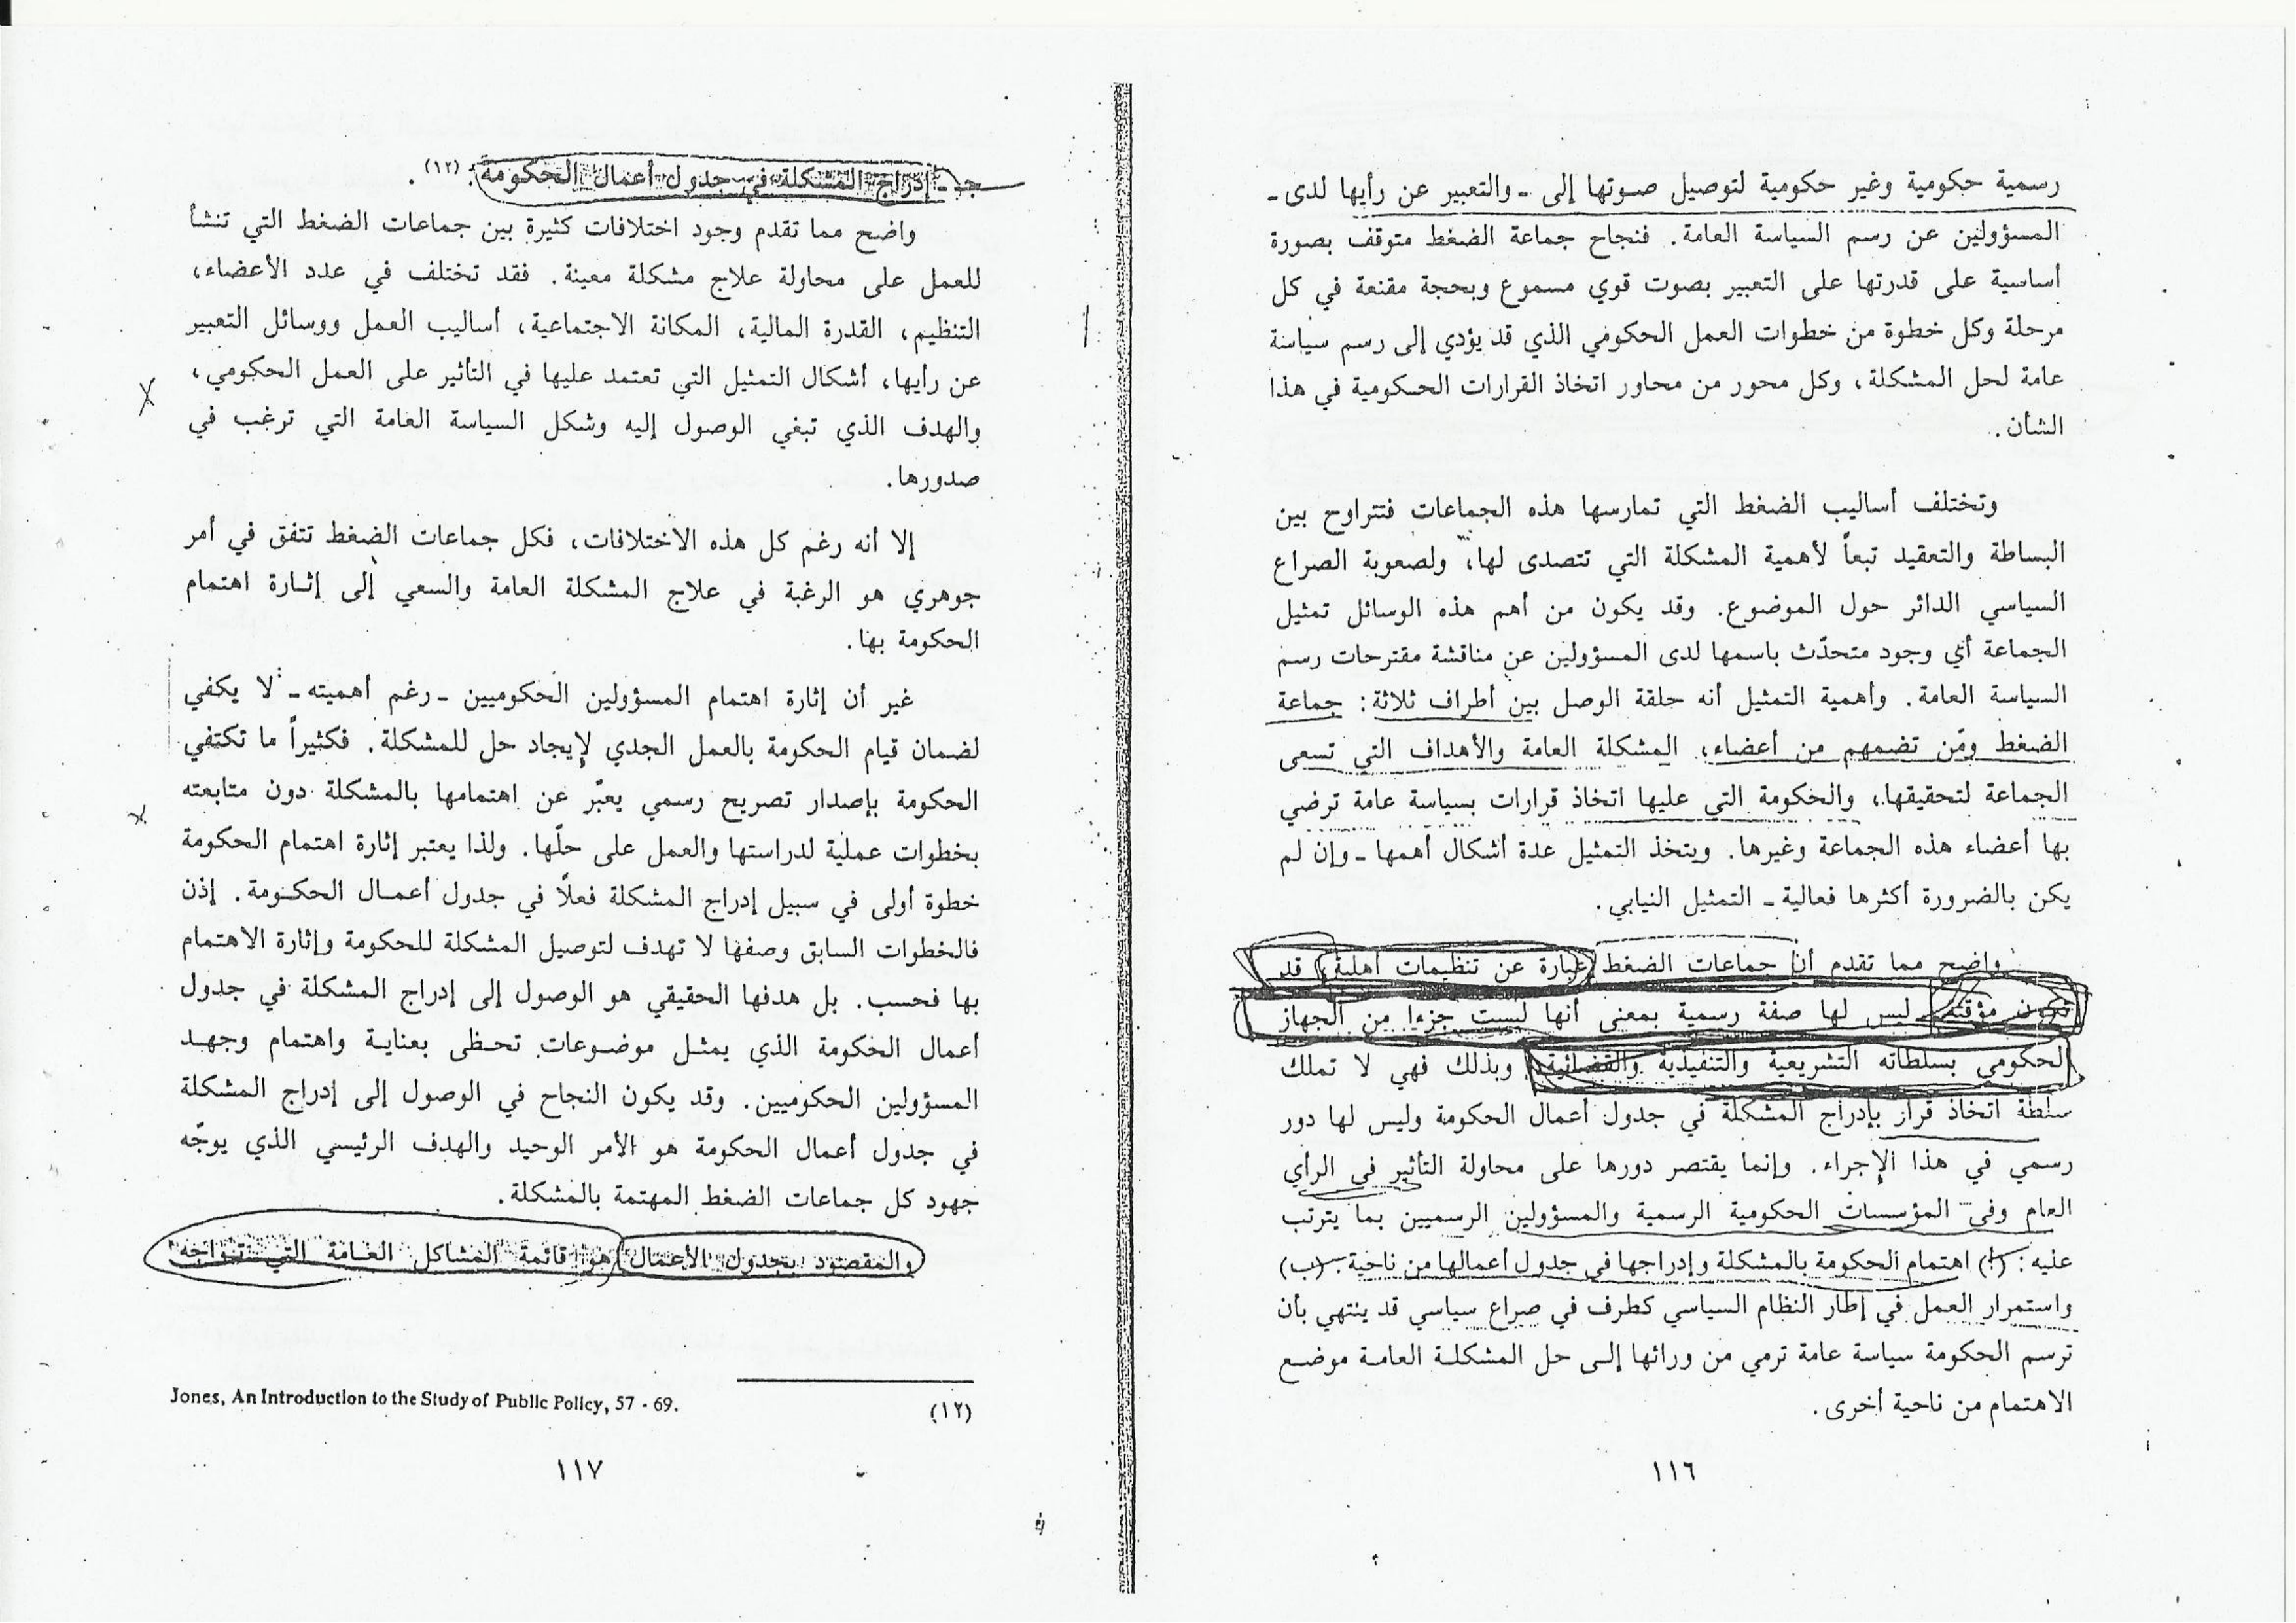 رسمية حكومية وغير حكومية لتوصيل صوتها إلى ـ والتعبير عن رأيها لدى ـ
المسؤولين عن رسم السياسة العامة. فنجاح جماعة الضغط متوقف بصورة
أساسية على قدرتها على التعبير بصوت قوي مسموع وبحجة مقنعة في كل
مرحلة وكل خطوة من خطوات العمل الحكومي الذي قد يؤدي إلى رسم سياسة
عامة لحل المشكلة، وكل محور من محاور اتخاذ القرارات الحكومية في هذا
الشأن.
وتختلف أساليب الضغط التي تمارسها هذه الجماعات فتتراوح بين
البساطة والتعقيد تبعاً لأهمية المشكلة التي تتصدى لها، ولصعوبة الصراع
السياسي الدائر حول الموضوع. وقد يكون من أهم هذه الوسائل تمثيل
الجماعة أي وجود متحدّث باسمها لدى المسؤولين عن مناقشة مقترحات رسم
السياسة العامة. وأهمية التمثيل أنه حلقة الوصل بين أطراف ثلاثة: جماعة
الضغط ومَن تضمهم من أعضاء، المشكلة العامة والأهداف التي تسعى
الجماعة لتحقيقها، والحكومة التي عليها اتخاذ قرارات بسياسة عامة ترضي
بها أعضاء هذه الجماعة وغيرها. ويتخذ التمثيل عدة أشكال أهمها ـ وإن لم
يكن بالضرورة أكثرها فعالية ـ التمثيل النيابي.
واضح مما تقدم أن جماعات الضغط عبارة عن تنظيمات أهلية، قد
تكون مؤقتة، ليس لها صفة رسمية بمعنى أنها ليست جزءا من الجهاز
الحكومي بسلطاته التشريعية والتنفيذية والقضائية. وبذلك فهي لا تملك
سلطة اتخاذ قرار بإدراج المشكلة في جدول أعمال الحكومة وليس لها دور
رسمي في هذا الإجراء. وإنما يقتصر دورها على محاولة التأثير في الرأي
العام وفي المؤسسات الحكومية الرسمية والمسؤولين الرسميين بما يترتب
عليه: (أ) اهتمام الحكومة بالمشكلة وإدراجها في جدول أعمالها من ناحية. (ب)
واستمرار العمل في إطار النظام السياسي كطرف في صراع سياسي قد ينتهي بأن
ترسم الحكومة سياسة عامة ترمي من ورائها إلى حل المشكلة العامة موضع
الاهتمام من ناحية أخرى.
١١٦
جـ ـ إدراج المشكلة في جدول أعمال الحكومة: (١٢).
واضح مما تقدم وجود اختلافات كثيرة بين جماعات الضغط التي تنشأ
للعمل على محاولة علاج مشكلة معينة. فقد تختلف في عدد الأعضاء،
التنظيم، القدرة المالية، المكانة الاجتماعية، أساليب العمل ووسائل التعبير
عن رأيها، أشكال التمثيل التي تعتمد عليها في التأثير على العمل الحكومي،
والهدف الذي تبغي الوصول إليه وشكل السياسة العامة التي ترغب في
صدورها.
إلا أنه رغم كل هذه الاختلافات، فكل جماعات الضغط تتفق في أمر
جوهري هو الرغبة في علاج المشكلة العامة والسعي إلى إثارة اهتمام
الحكومة بها.
غير أن إثارة اهتمام المسؤولين الحكوميين ـ رغم أهميته ـ لا يكفي
لضمان قيام الحكومة بالعمل الجدي لإيجاد حل للمشكلة. فكثيراً ما تكتفي
الحكومة بإصدار تصريح رسمي يعبّر عن اهتمامها بالمشكلة دون متابعته
بخطوات عملية لدراستها والعمل على حلّها. ولذا يعتبر إثارة اهتمام الحكومة
خطوة أولى في سبيل إدراج المشكلة فعلًا في جدول أعمال الحكومة. إذن
فالخطوات السابق وصفها لا تهدف لتوصيل المشكلة للحكومة وإثارة الاهتمام
بها فحسب. بل هدفها الحقيقي هو الوصول إلى إدراج المشكلة في جدول
أعمال الحكومة الذي يمثل موضوعات تحظى بعناية واهتمام وجهد
المسؤولين الحكوميين. وقد يكون النجاح في الوصول إلى إدراج المشكلة
في جدول أعمال الحكومة هو الأمر الوحيد والهدف الرئيسي الذي يوجّه
جهود كل جماعات الضغط المهتمة بالمشكلة.
والمقصود بجدول الأعمال هو قائمة المشاكل العامة التي تواجه
(١٢) Jones, An Introduction to the Study of Public Policy, 57 - 69.
١١٧